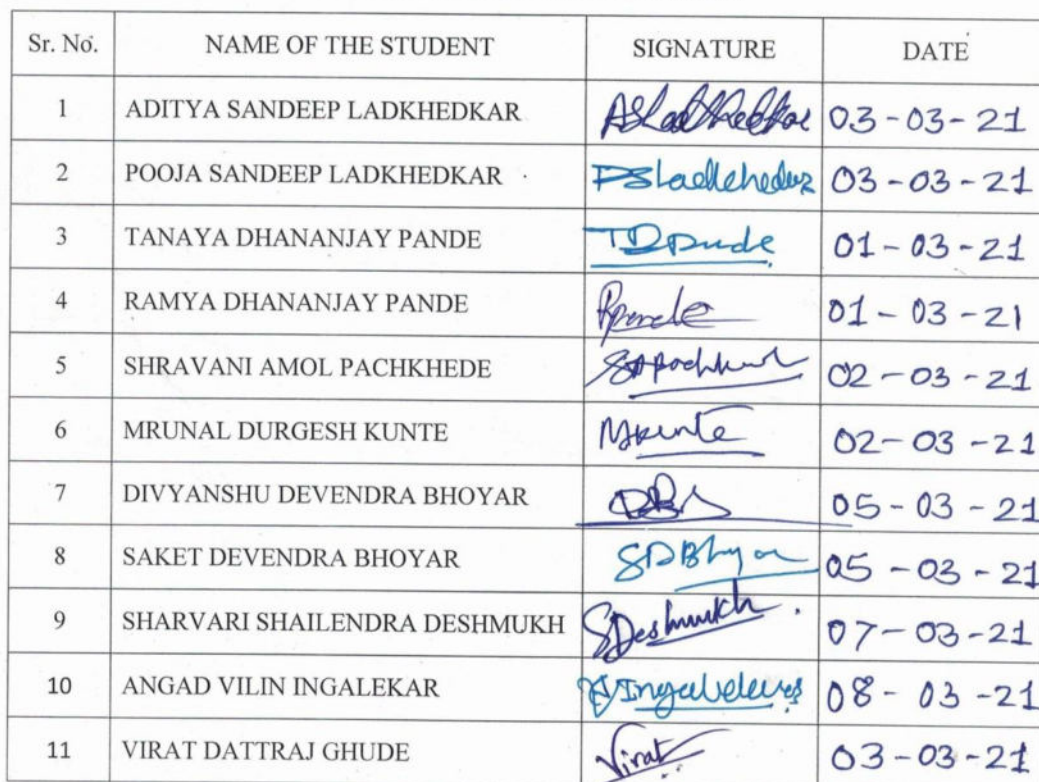 Sr. No. NAME OF THE STUDENT SIGNATURE DATE
1 ADITYA SANDEEP LADKHEDKAR ASLadkhedkar 03-03-21
2 POOJA SANDEEP LADKHEDKAR PSLadkhedkar 03-03-21
3 TANAYA DHANANJAY PANDE TDPande 01-03-21
4 RAMYA DHANANJAY PANDE RPande 01-03-21
5 SHRAVANI AMOL PACHKHEDE 02-03-21
6 MRUNAL DURGESH KUNTE MKunte 02-03-21
7 DIVYANSHU DEVENDRA BHOYAR 05-03-21
8 SAKET DEVENDRA BHOYAR SDBhyar 05-03-21
9 SHARVARI SHAILENDRA DESHMUKH SDeshmukh 07-03-21
10 ANGAD VILIN INGALEKAR 08-03-21
11 VIRAT DATTRAJ GHUDE Virat 03-03-21